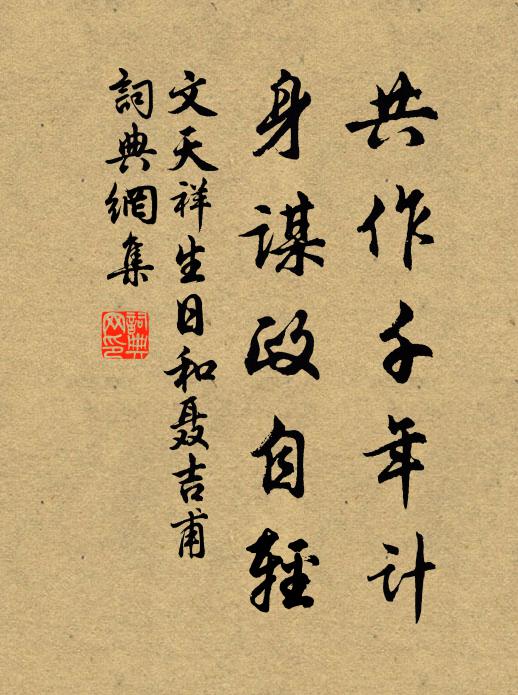 共作千年計
身謀政自輕
文天祥生日和聶吉甫
詞典網集
詞典網印